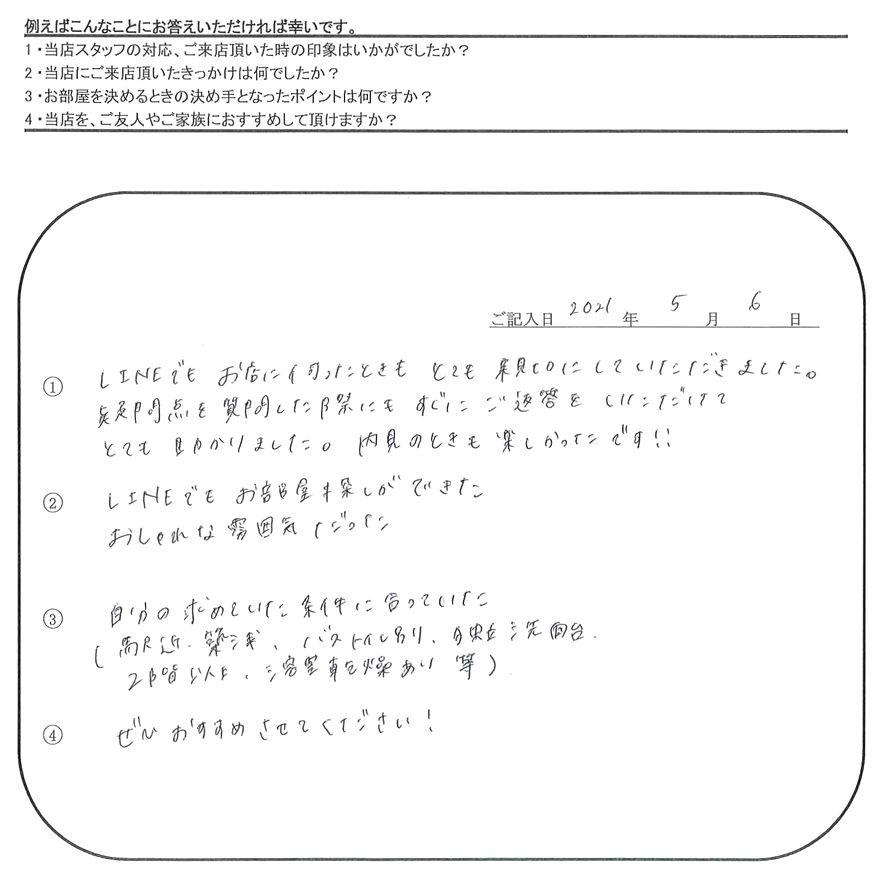 例えばこんなことにお答えいただければ幸いです。
1・当店スタッフの対応、ご来店頂いた時の印象はいかがでしたか?
2・当店にご来店頂いたきっかけは何でしたか?
3・お部屋を決めるときの決め手となったポイントは何ですか?
4・当店を、ご友人やご家族におすすめして頂けますか?
ご記入日 2021 年 5 月 6 日
① LINEでも お店に行ったときも とても 親切にしていただきました。
疑問点を 質問した際にも すぐに ご返答を いただけて
とても 助かりました。内見のときも 楽しかったです!!
② LINEでも お部屋探しが できた
おしゃれな 雰囲気だった
③ 自分の 求めていた 条件に 合っていた
(駅近、築浅、バストイレ別り、独立洗面台、
2階以上、浴室乾燥あり 等)
④ ぜひ おすすめ させてください!